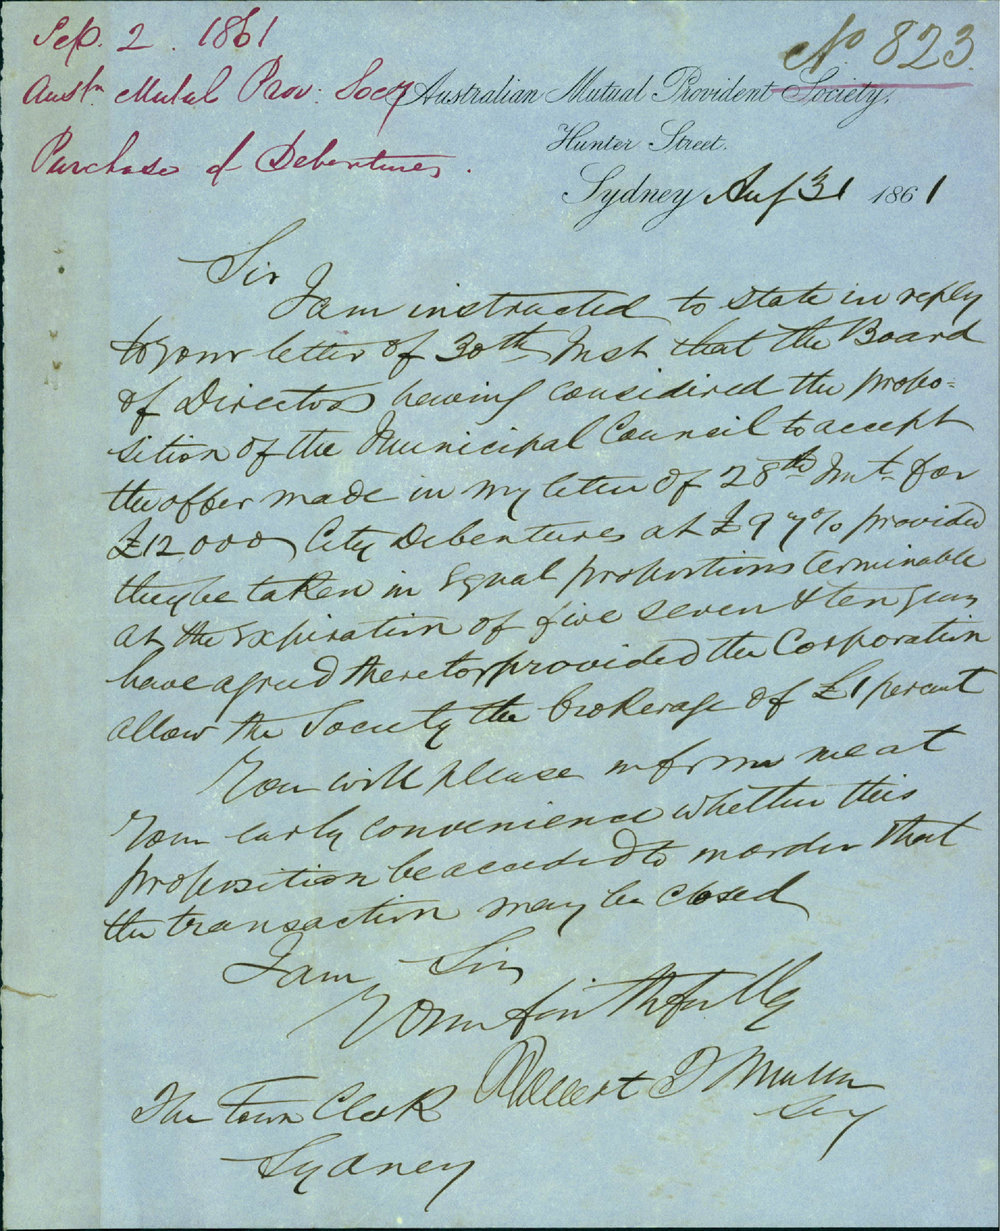 Sep. 2. 1861
No 823
Austn Mutual Prov: Socy
Australian Mutual Provident Society,
Hunter Street.
Purchase of Debentures.
Sydney Aug 31 1861
Sir
I am instructed to state in reply
to your letter of 30th Inst that the Board
of Directors having considered the propo=
sition of the Municipal Council to accept
the offer made in my letter of 28th Inst. for
£12000 City Debentures at £97% provided
they be taken in equal proportions terminable
at the expiration of five seven & ten years
have agreed thereto provided the Corporation
allow the Society the brokerage of £1 percent
You will please inform me at
Your early convenience whether this
proposition be acceded to in order that
the transaction may be closed
I am Sir
Your faithfully
Robert
Secy
The Town Clerk
Sydney